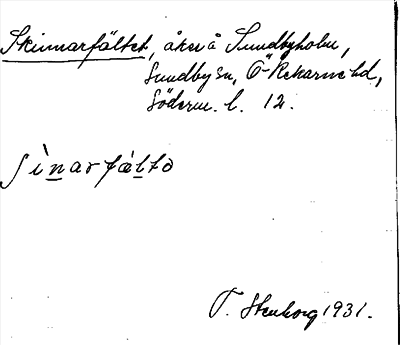 Skinnarfältet, åker å Sundbyholm,
Sundby sn, Ö-Rekarne hd,
Söderm. l. 12.
ʃìnarfæ̀lto
T. Stenborg 1931.